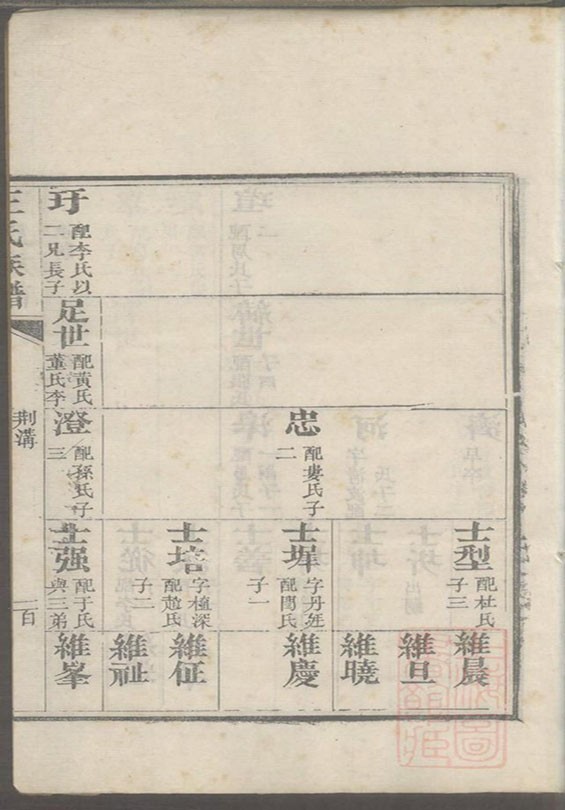 士型
配杜氏
子三
維晨
維旦
維曉
忠
配婁氏子
二
士墀
字丹廷
配閻氏
子一
維慶
士培
字植深
配趙氏
子二
維征
維祉
玗
配李氏以
二兄長子
足世
配黃氏
董氏李
澄
配孫氏子
三
士强
配于氏
與三弟
維峯
王氏族譜
荆溝
一百